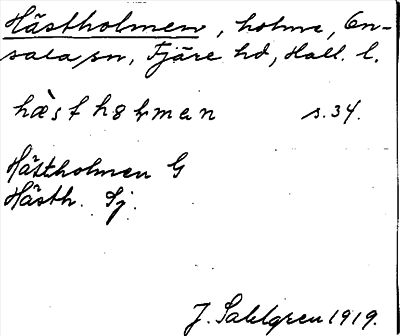 Hästholmen, holme, On-
sala sn, Fjäre hd, Hall. l.
s. 34.
Hästholmen G
Hästh. Sj.
J. Sahlgren 1919.